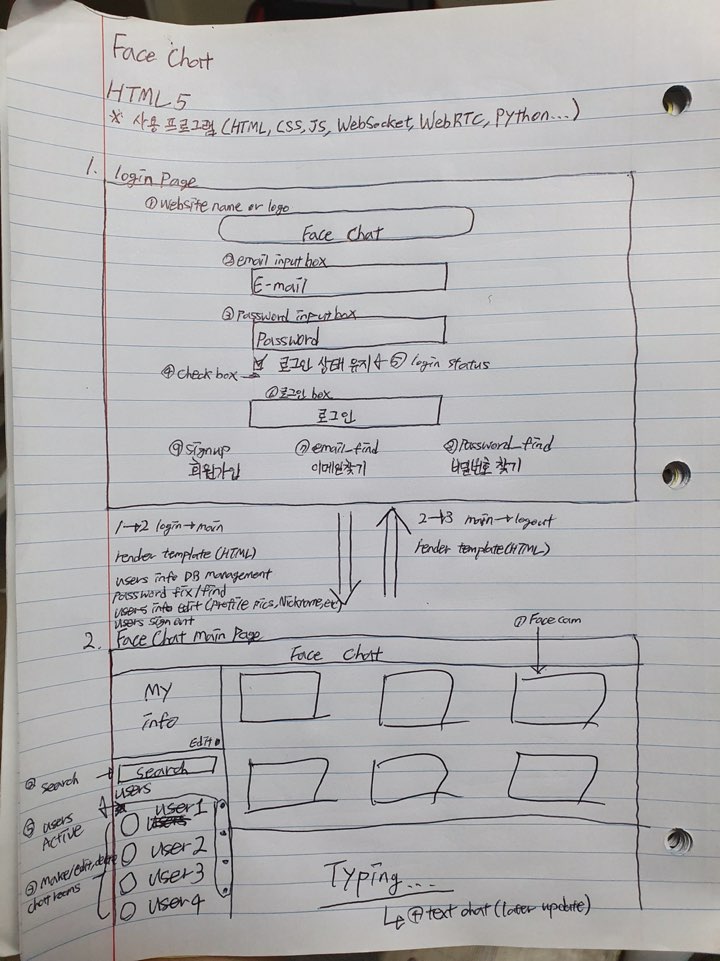 Face Chat
HTML5
※ 사용 프로그램 (HTML, CSS, JS, WebSocket, WebRTC, Python...)
1. login Page
① Website name or logo
Face Chat
② email input box
E-mail
③ Password input box
Password
④ check box → ☑ 로그인 상태 유지 ← ⑤ login status
⑥ 로그인 box
로그인
⑨ sign up ⑦ email_find ⑧ Password_find
회원가입 이메일찾기 비밀번호 찾기
1→2 login→main
render template (HTML)
users info DB management
password fix/find
users info edit (Profile pics, Nickname, etc)
users sign out
2→3 main→logout
render template (HTML)
2. Face Chat main Page
① Face cam
Face Chat
My
info
Edit
② search → search
users
users Active
user1
user2
user3
user4
③ make/edit, delete
chat rooms
Typing...
④ text chat (later update)